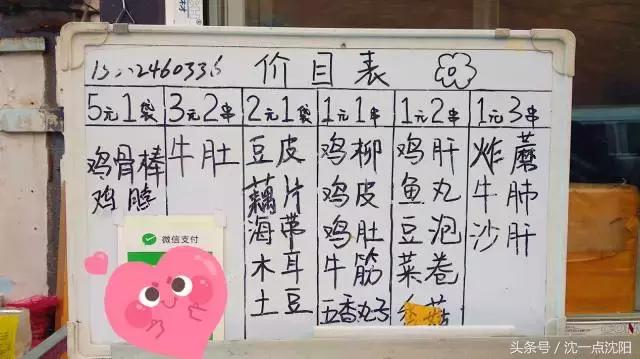 价目表
5元1袋 3元2串 2元1袋 1元1串 1元2串 1元3串
鸡骨棒 牛肚 豆皮 鸡柳 鸡肝 炸蘑
鸡脖 藕片 鸡皮 鱼丸 牛肺
海带 鸡肚 豆泡 沙肝
微信支付
木耳 牛筋 菜卷
土豆 五香丸子 菇
头条号 / 沈一点沈阳